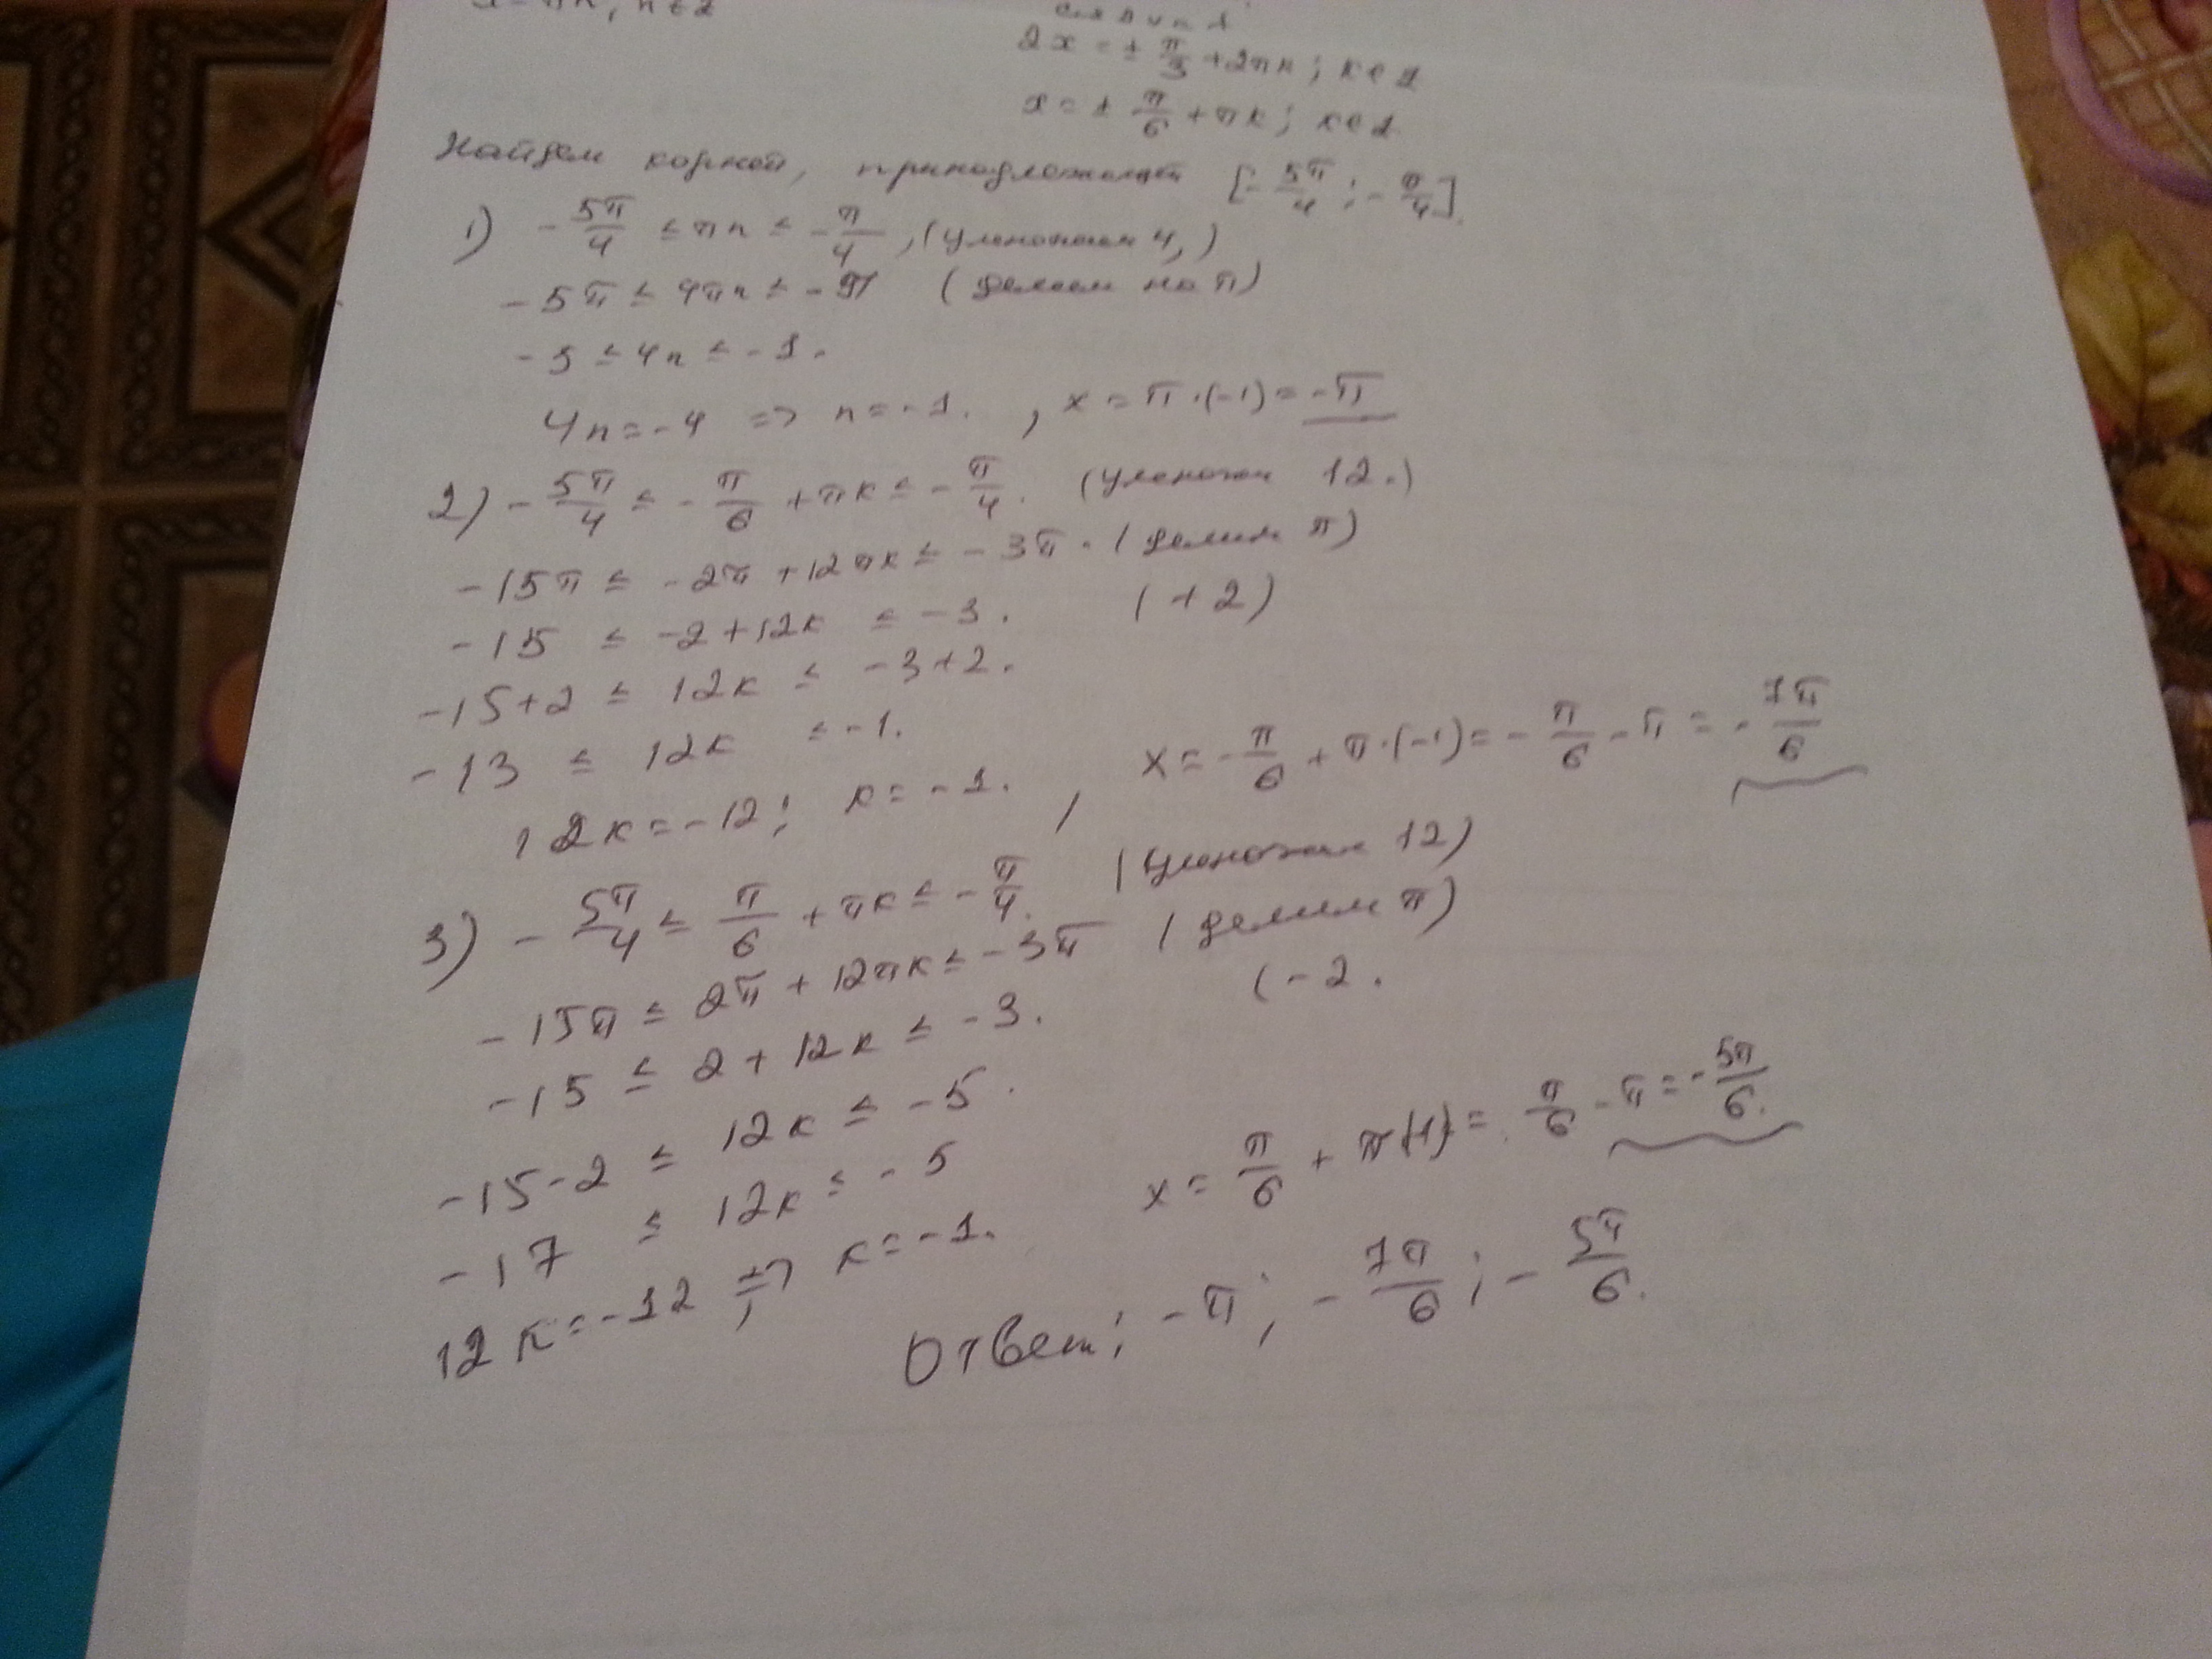 x = πn, n ∈ Z
2x = ± π/3 + 2πк; к ∈ Z
x = ± π/6 + πк; к ∈ Z
Найдем корней, принадлежащей [-5π/4; -π/4].
1) -5π/4 ≤ πn ≤ -π/4, (умножаем 4,)
-5π ≤ 4πn ≤ -π (делаем на π)
-5 ≤ 4n ≤ -1.
4n = -4 => n = -1. , x = π·(-1) = -π
2) -5π/4 ≤ -π/6 + πк ≤ -π/4. (умножам 12.)
-15π ≤ -2π + 12πк ≤ -3π. (делим π)
-15 ≤ -2 + 12к ≤ -3. (+2)
-15+2 ≤ 12к ≤ -3+2.
-13 ≤ 12к ≤ -1.
12к = -12; к = -1. , x = -π/6 + π·(-1) = -π/6 - π = -7π/6
3) -5π/4 ≤ π/6 + πк ≤ -π/4. (умножам 12)
-15π ≤ 2π + 12πк ≤ -3π (делим π)
-15 ≤ 2 + 12к ≤ -3. (-2.
-15-2 ≤ 12к ≤ -5.
-17 ≤ 12к ≤ -5
12к = -12 => к = -1. x = π/6 + π(-1) = π/6 - π = -5π/6.
Ответ; -π; -7π/6; -5π/6.